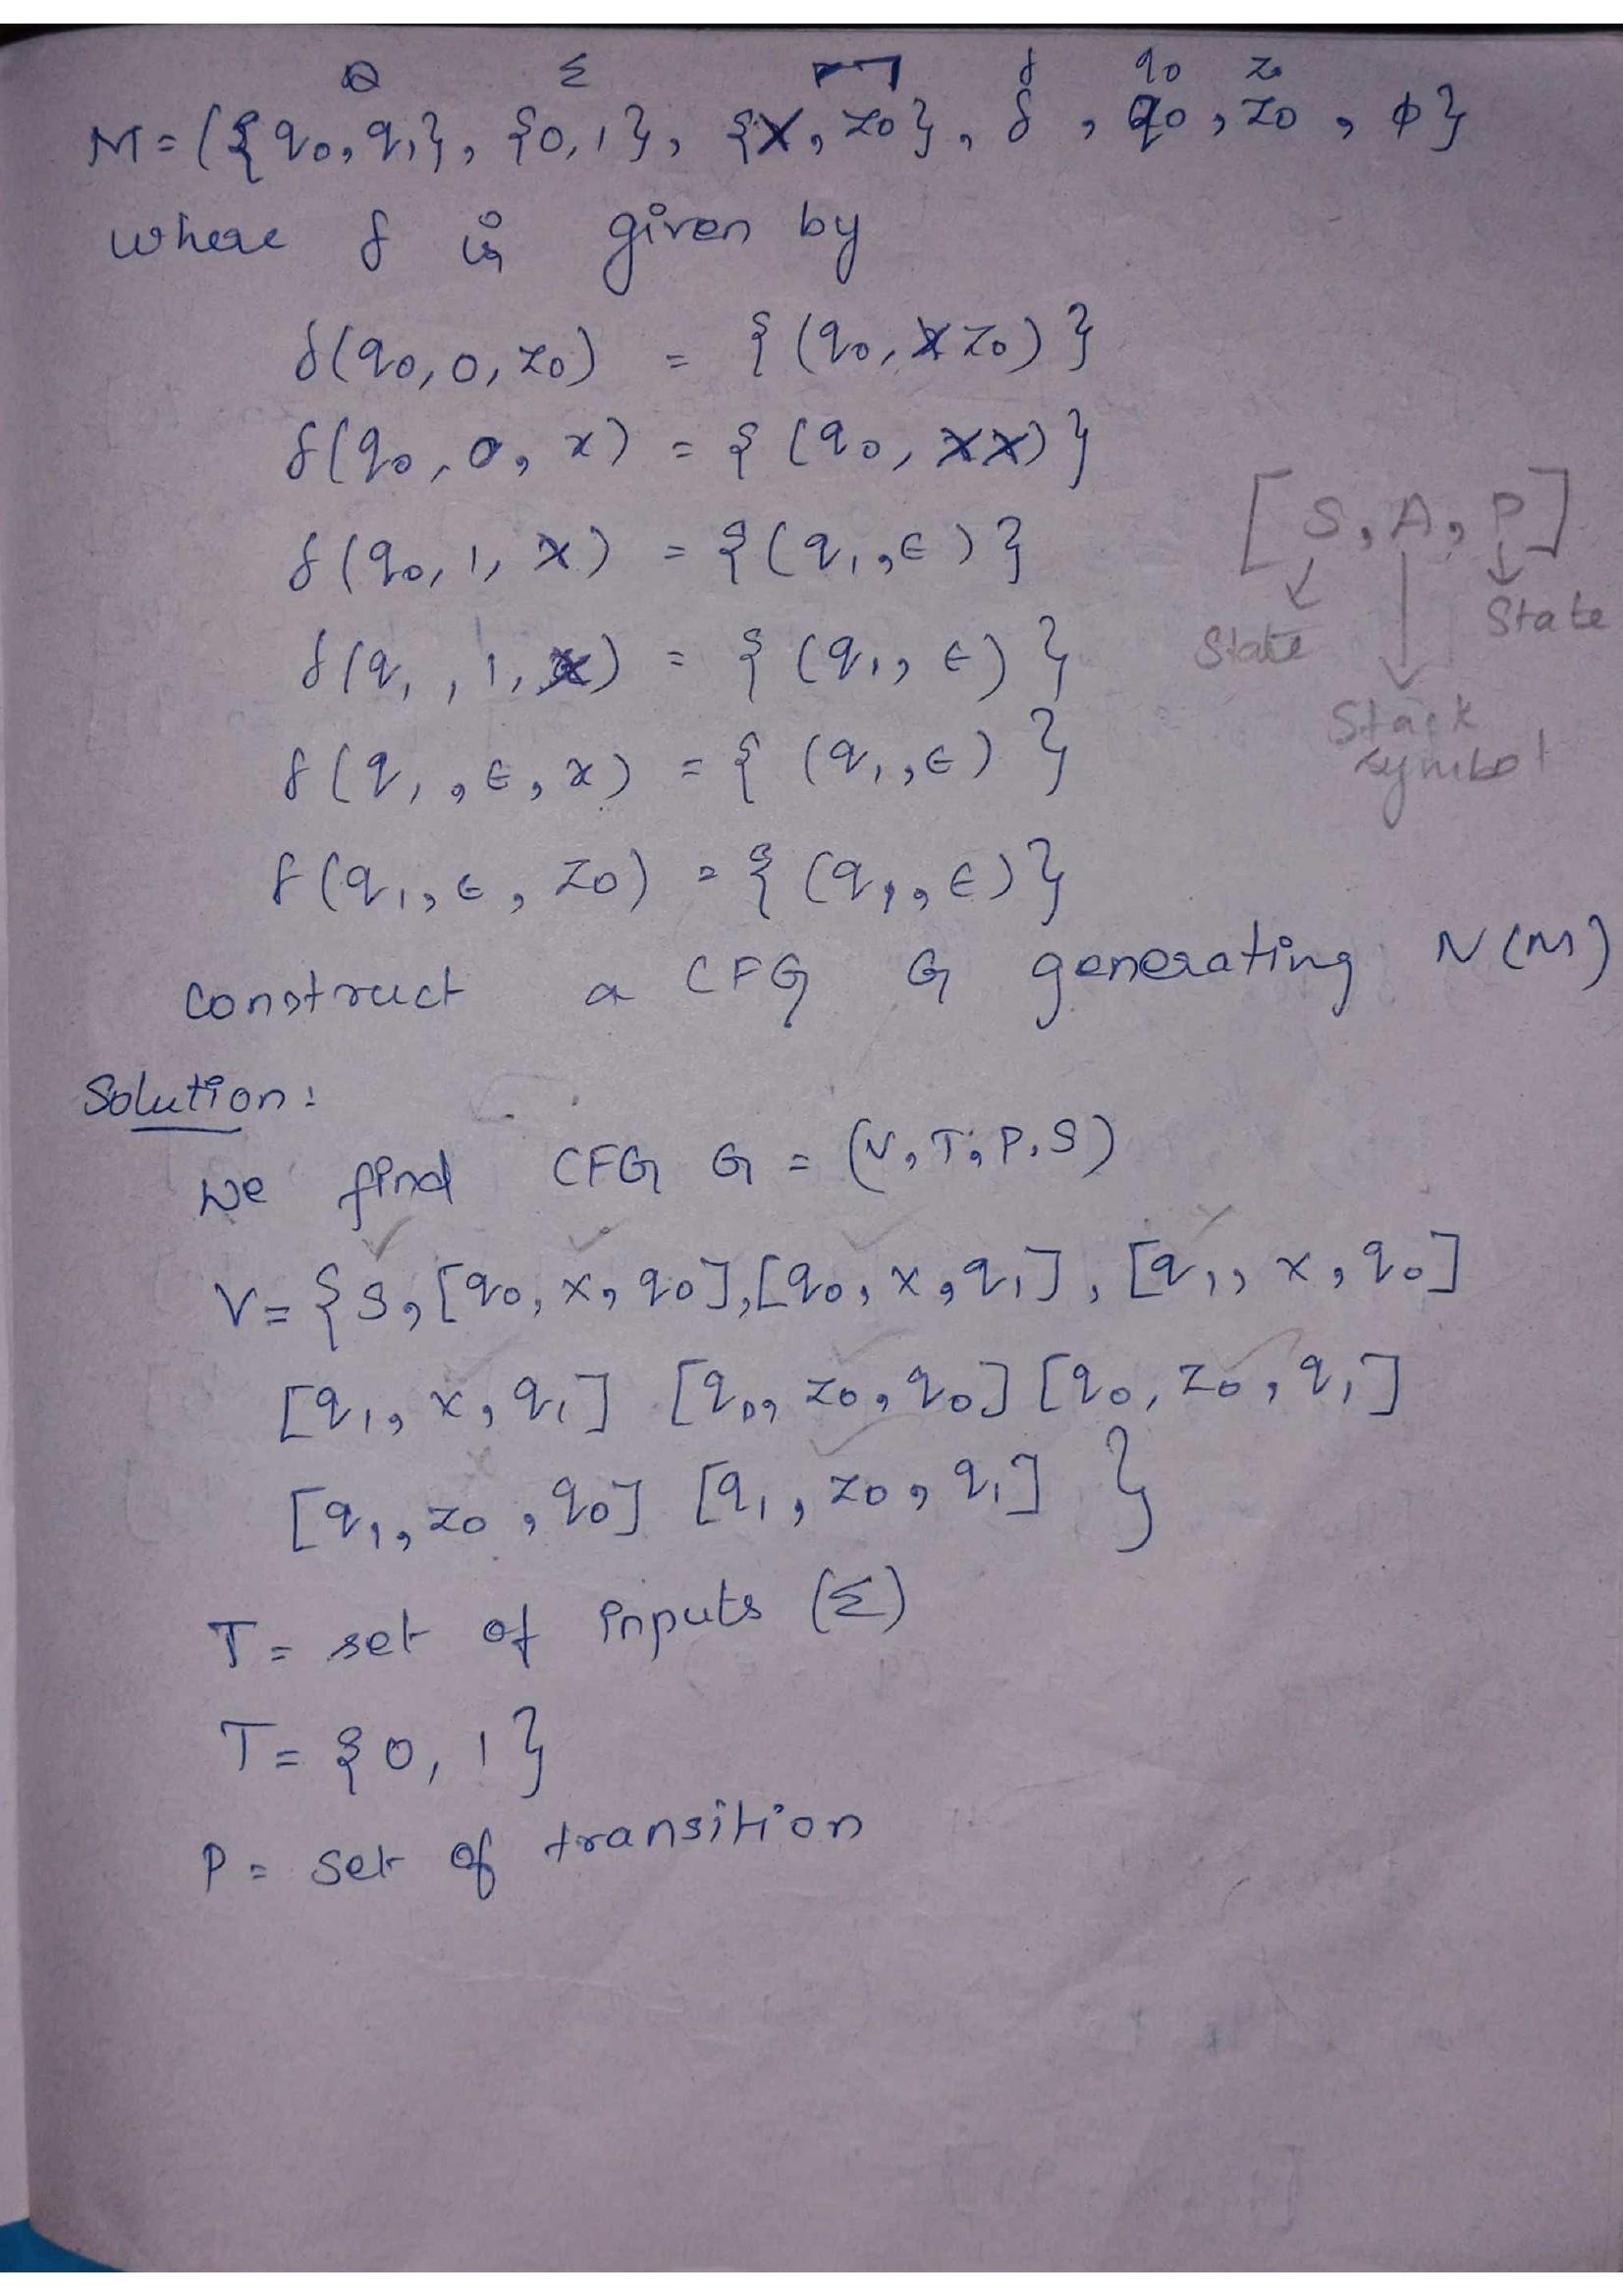 Q Σ Γ δ q0 z0
M = ({q0, q1}, {0, 1}, {X, z0}, δ, q0, z0, ϕ}
where δ is given by
δ(q0, 0, z0) = {(q0, XZ0)}
δ(q0, 0, x) = {(q0, XX)}
δ(q0, 1, X) = {(q1, ϵ)}
δ(q1, 1, X) = {(q1, ϵ)}
δ(q1, ϵ, x) = {(q1, ϵ)}
δ(q1, ϵ, Z0) = {(q1, ϵ)}
[S, A, P]
↓ ↓ ↓
State
State
Stack
symbol
construct a CFG G generating N(M)
Solution:
We find CFG G = (V, T, P, S)
V = {S, [q0, x, q0], [q0, x, q1], [q1, x, q0]
[q1, x, q1] [q0, z0, q0] [q0, z0, q1]
[q1, z0, q0] [q1, z0, q1] }
T = set of inputs (Σ)
T = {0, 1}
P = set of transition